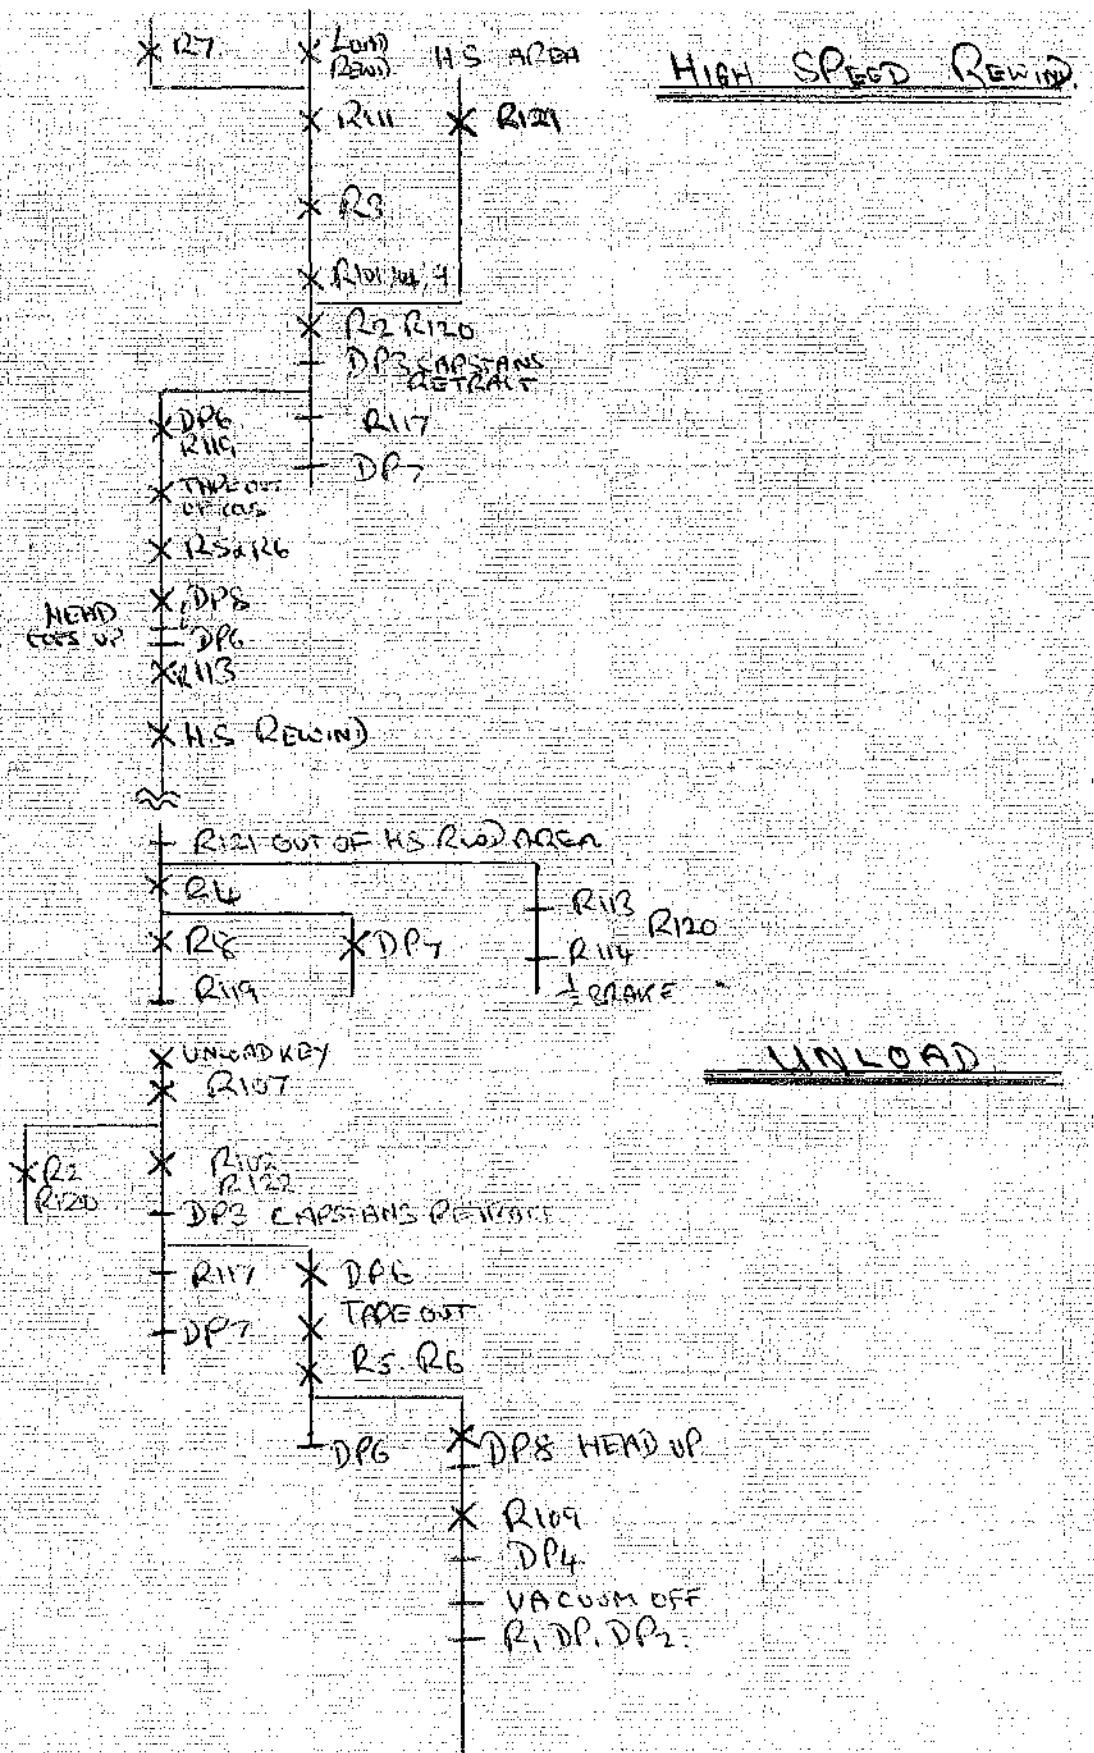 R7
LOAD
REWD
H.S AREA
HIGH SPEED REWIND
R111
R121
R3
R2 R120
DP3 CAPSTANS
RETRACT
DP6
R119
R117
DP7
TAPE OUT
OF COLS
R5 & R6
DP8
HEAD
GOES UP
DP6
R113
H.S REWIND
R121 OUT OF HS RWD AREA
R4
R113
R120
R8
DP7
R114
R119
½ BRAKE
UNLOAD KEY
UNLOAD
R107
R2
R120
R102
R122
DP3 CAPSTANS RETRACT
R117
DP6
TAPE OUT
DP7
R5. R6
DP6
DP8 HEAD UP
R109
DP4
VACUUM OFF
R1 DP1 DP2.